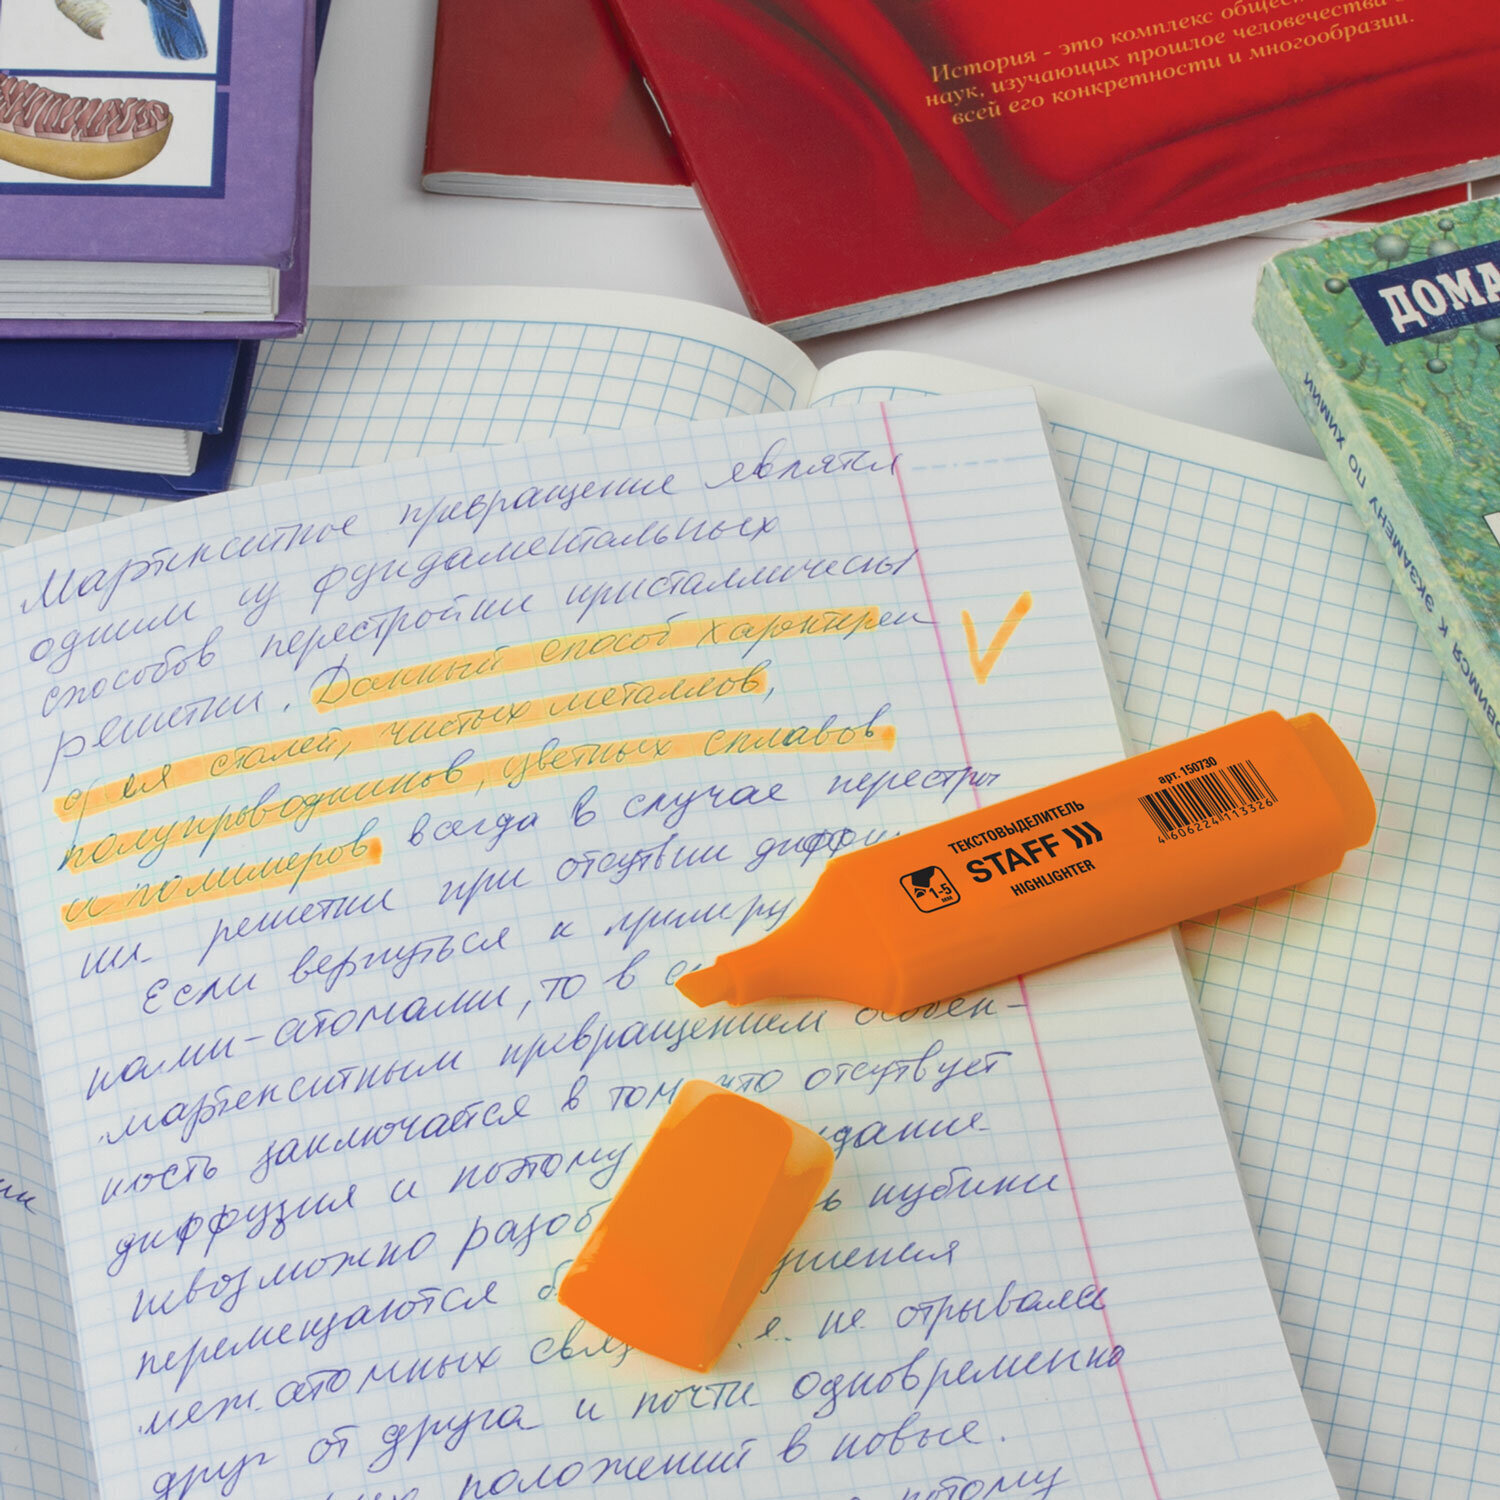 История - это комплекс общест
наук, изучающих прошлое человечества
всей его конкретности и многообразии.
ДОМА
ОВИМСЯ К ЭКЗАМЕНУ ПО ХИМИИ
Мартенситное превращение являятся
одним из фундаментальных
способов перестройки кристаллическы
решетки. Данный способ характерен
для сталей, чистых металлов,
полупроводников, цветных сплавов
и полимеров всегда в случае перестро
решетки при отсутвии диффу
Если вернуться к примеру
ками-атомами, то в с
мартенситным превращением особен-
ность заключается в том что отсутвует
диффузия и поэтому здание
невозможно разоб ь кубики
перемещаются б ушения
межатомных связ .е. не отрывалсь
друг от друга и почти одновременно
положений в новые.
потому
ТЕКСТОВЫДЕЛИТЕЛЬ
STAFF
HIGHLIGHTER
1-5
мм
арт. 150730
4 606224 113326